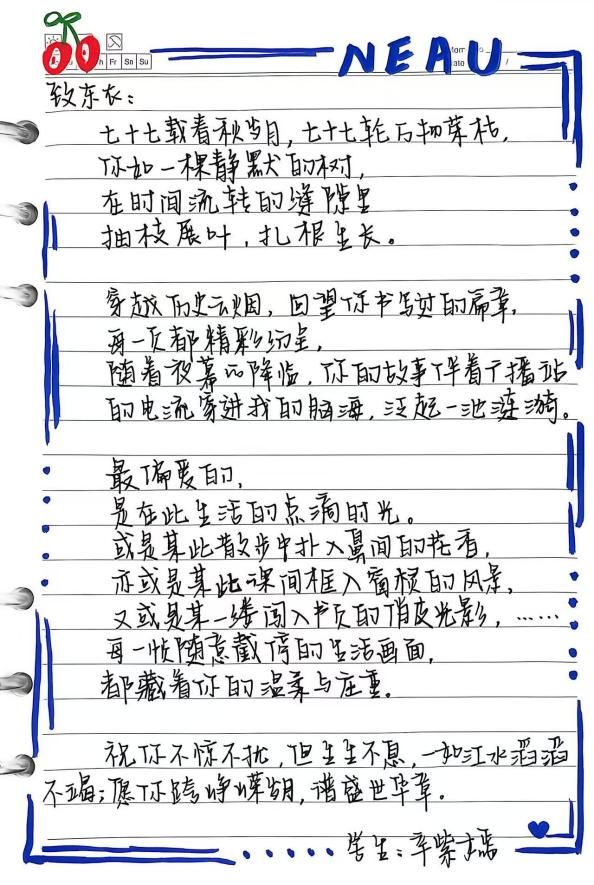 NEAU
Fr Sn Su
致东农：
七十七载春秋岁月，七十七轮万物荣枯，
你如一棵静默的树，
在时间流转的缝隙里
抽枝展叶，扎根生长。
穿越历史云烟，回望你书写过的篇章，
每一页都精彩纷呈，
随着夜幕的降临，你的故事伴着广播站
的电流穿进我的脑海，泛起一池涟漪。
最偏爱的，
是在此生活的点滴时光。
或是某此散步中扑入鼻间的花香，
亦或是某此课间框入窗棂的风景，
又或是某一缕闯入书页的俏皮光影，……
每一帧随意截停的生活画面，
都藏着你的温柔与庄重。
祝你不惊不扰，但生生不息，一如江水滔滔
不竭；愿你跨峥嵘岁月，谱盛世华章。
学生：辛紫嫣